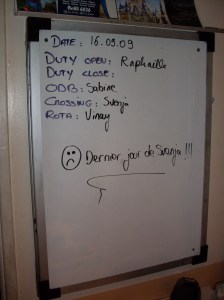 DATE: 16.09.09
DUTY OPEN: Raphaelle
DUTY CLOSE:
ODB: Sabine
CROSSING: Svenja
ROTA: Vinay
Dernier jour de Svenja!!!